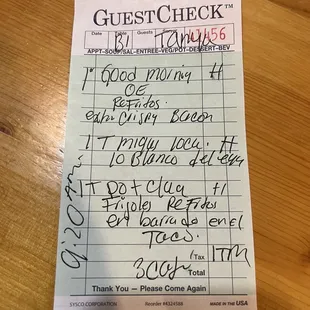 GUESTCHECK™
Date Guests
B1 Tanya 456
APPT-SOUP/SAL-ENTREE-VEG/POT-DESSERT-BEV
1 Good morning #
OE
Refritos
extra Crispy Bacon
1 T migas loca. #
lo Blanco del egg
1 T pot + #1
Frijoles Refritos
en barrado en el
Taco.
9:20 A.M.
Tax 1TM
3 Total
Thank You — Please Come Again
SYSCO CORPORATION Reorder #8324588 MADE IN THE USA